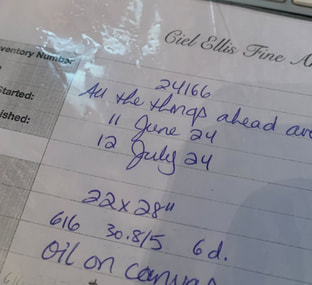 Ciel Ellis Fine
ventory Number
24166
All the things ahead
Started:
11 June 24
ished:
12 July 24
22x28"
616 30.8/5 6d.
Oil on canvas